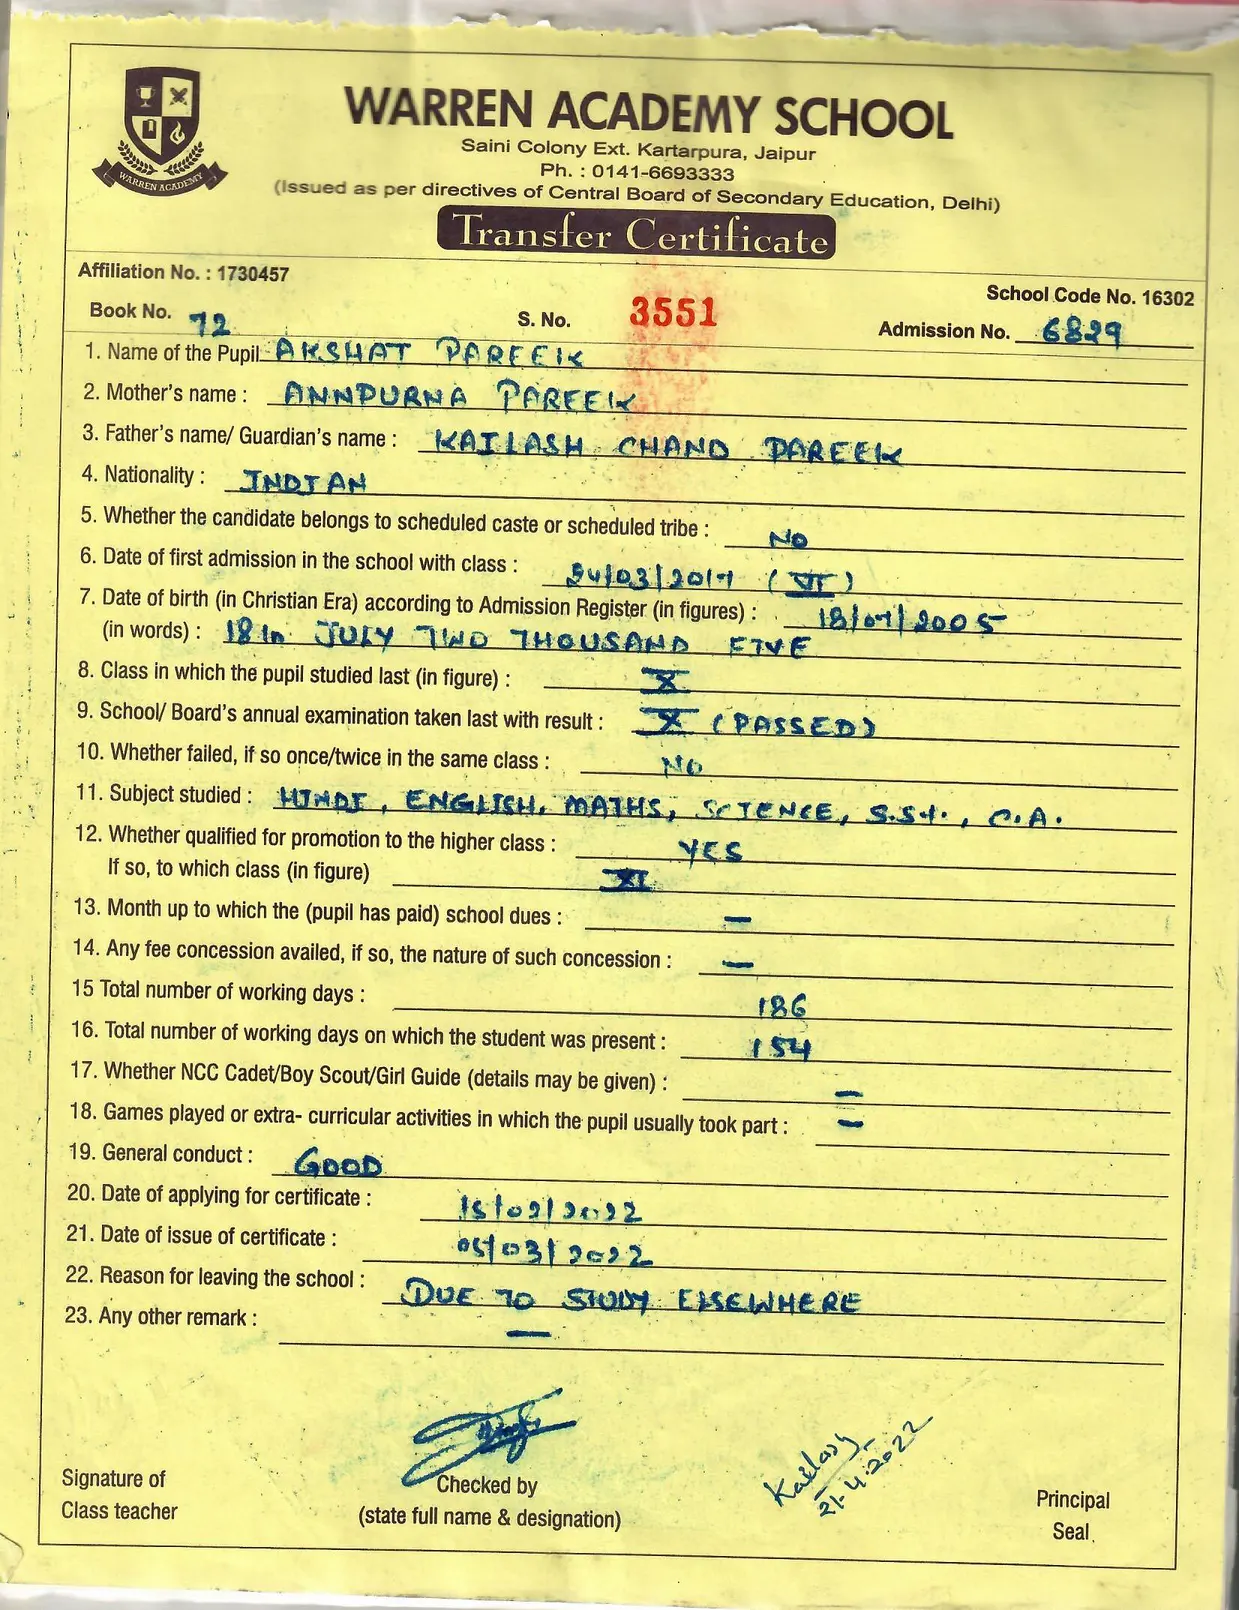 WARREN ACADEMY
WARREN ACADEMY SCHOOL
Saini Colony Ext. Kartarpura, Jaipur
Ph. : 0141-6693333
(Issued as per directives of Central Board of Secondary Education, Delhi)
Transfer Certificate
Affiliation No. : 1730457
School Code No. 16302
Book No. 72 S. No. 3551 Admission No. 6829
1. Name of the Pupil AKSHAT PAREEK
2. Mother's name : ANNPURNA PAREEK
3. Father's name/ Guardian's name : KAILASH CHAND PAREEK
4. Nationality : INDIAN
5. Whether the candidate belongs to scheduled caste or scheduled tribe : NO
6. Date of first admission in the school with class : 24/03/2017 (VI)
7. Date of birth (in Christian Era) according to Admission Register (in figures) : 18/07/2005
(in words) : 18th JULY TWO THOUSAND FIVE
8. Class in which the pupil studied last (in figure) : X
9. School/ Board's annual examination taken last with result : X (PASSED)
10. Whether failed, if so once/twice in the same class : NO
11. Subject studied : HINDI, ENGLISH, MATHS, SCIENCE, S.St., C.A.
12. Whether qualified for promotion to the higher class : YES
If so, to which class (in figure) XI
13. Month up to which the (pupil has paid) school dues : —
14. Any fee concession availed, if so, the nature of such concession : —
15 Total number of working days : 186
16. Total number of working days on which the student was present : 154
17. Whether NCC Cadet/Boy Scout/Girl Guide (details may be given) : —
18. Games played or extra- curricular activities in which the pupil usually took part : —
19. General conduct : GOOD
20. Date of applying for certificate : 15/02/2022
21. Date of issue of certificate : 05/03/2022
22. Reason for leaving the school : DUE TO STUDY ELSEWHERE
23. Any other remark : —
Kailash
21.4.2022
Signature of
Class teacher
Checked by
(state full name & designation)
Principal
Seal